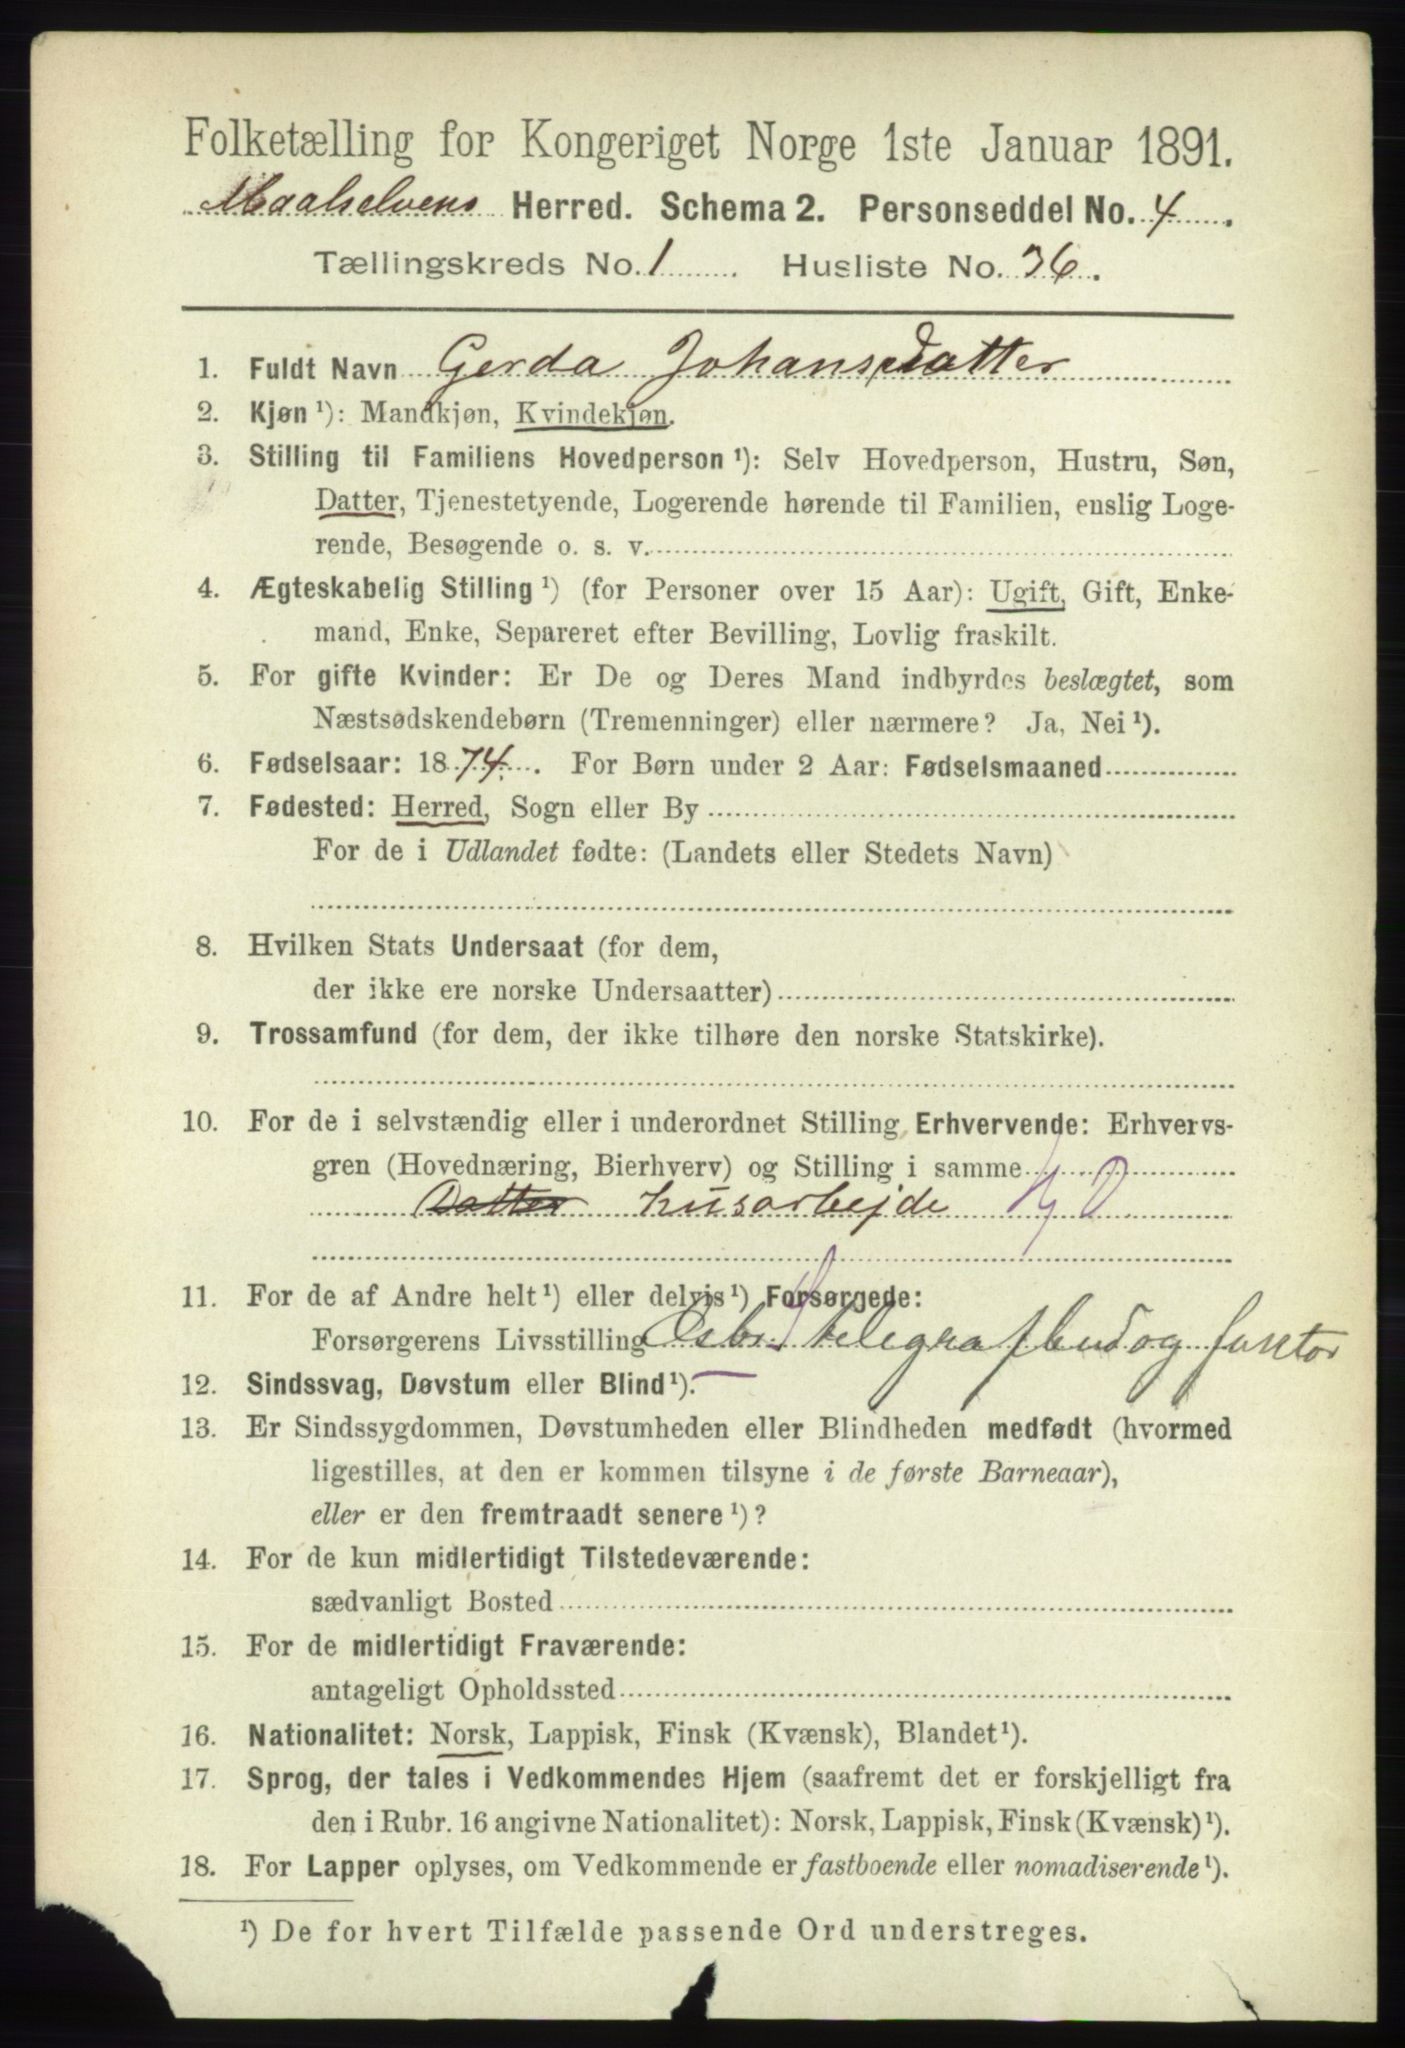 Folketælling for Kongeriget Norge 1ste Januar 1891.
Maalselvens Herred. Schema 2. Personseddel No. 4.
Tællingskreds No. 1. Husliste No. 36.
1. Fuldt Navn Gerda Johansdatter
2. Kjøn ¹): Mandkjøn, Kvindekjøn.
3. Stilling til Familiens Hovedperson ¹): Selv Hovedperson, Hustru, Søn,
Datter, Tjenestetyende, Logerende hørende til Familien, enslig Loge-
rende, Besøgende o. s. v.
4. Ægteskabelig Stilling ¹) (for Personer over 15 Aar): Ugift, Gift, Enke-
mand, Enke, Separeret efter Bevilling, Lovlig fraskilt.
5. For gifte Kvinder: Er De og Deres Mand indbyrdes beslægtet, som
Næstsødskendebørn (Tremenninger) eller nærmere? Ja, Nei ¹).
6. Fødselsaar: 1874. For Børn under 2 Aar: Fødselsmaaned
7. Fødested: Herred, Sogn eller By
For de i Udlandet fødte: (Landets eller Stedets Navn)
8. Hvilken Stats Undersaat (for dem,
der ikke ere norske Undersaatter)
9. Trossamfund (for dem, der ikke tilhøre den norske Statskirke).
10. For de i selvstændig eller i underordnet Stilling Erhvervende: Erhvervs-
gren (Hovednæring, Bierhverv) og Stilling i samme
Datter husarbejde
11. For de af Andre helt ¹) eller delvis ¹) Forsørgede:
Forsørgerens Livsstilling telegrafbud og
12. Sindssvag, Døvstum eller Blind ¹).
13. Er Sindssygdommen, Døvstumheden eller Blindheden medfødt (hvormed
ligestilles, at den er kommen tilsyne i de første Barneaar),
eller er den fremtraadt senere ¹)?
14. For de kun midlertidigt Tilstedeværende:
sædvanligt Bosted
15. For de midlertidigt Fraværende:
antageligt Opholdssted
16. Nationalitet: Norsk, Lappisk, Finsk (Kvænsk), Blandet ¹).
17. Sprog, der tales i Vedkommendes Hjem (saafremt det er forskjelligt fra
den i Rubr. 16 angivne Nationalitet): Norsk, Lappisk, Finsk (Kvænsk) ¹).
18. For Lapper oplyses, om Vedkommende er fastboende eller nomadiserende ¹).
¹) De for hvert Tilfælde passende Ord understreges.